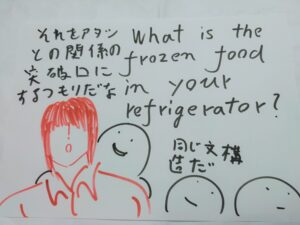 それをアタシ
との関係の
突破口に
するつもりだな
What is the
frozen food
in your
refrigerator?
同じ文構
造だ